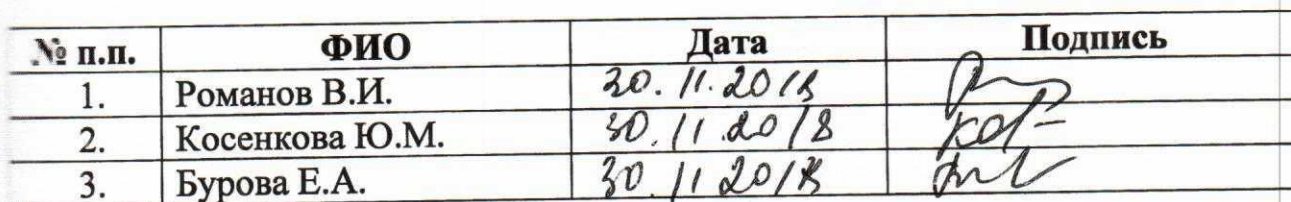 № п.п. ФИО Дата Подпись
1. Романов В.И. 30.11.2018
2. Косенкова Ю.М. 30.11.2018
3. Бурова Е.А. 30.11.2018